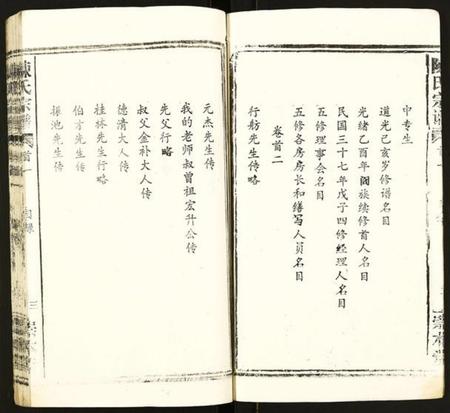 陳氏宗譜
卷首一
中专生
道光己亥岁修谱名目
光绪乙酉年阖族续修首人名目
民国三十七年戊子四修经理人名目
五修理事会名目
五修各房房长和缮写人员名目
卷首二
行舫先生传略
元杰先生传
我的老师叔曾祖宏升公传
先父行略
叔父金补大人传
德清大人传
桂林先生行略
伯才先生传
振池先生传
陳氏宗譜
卷首一
目録
三